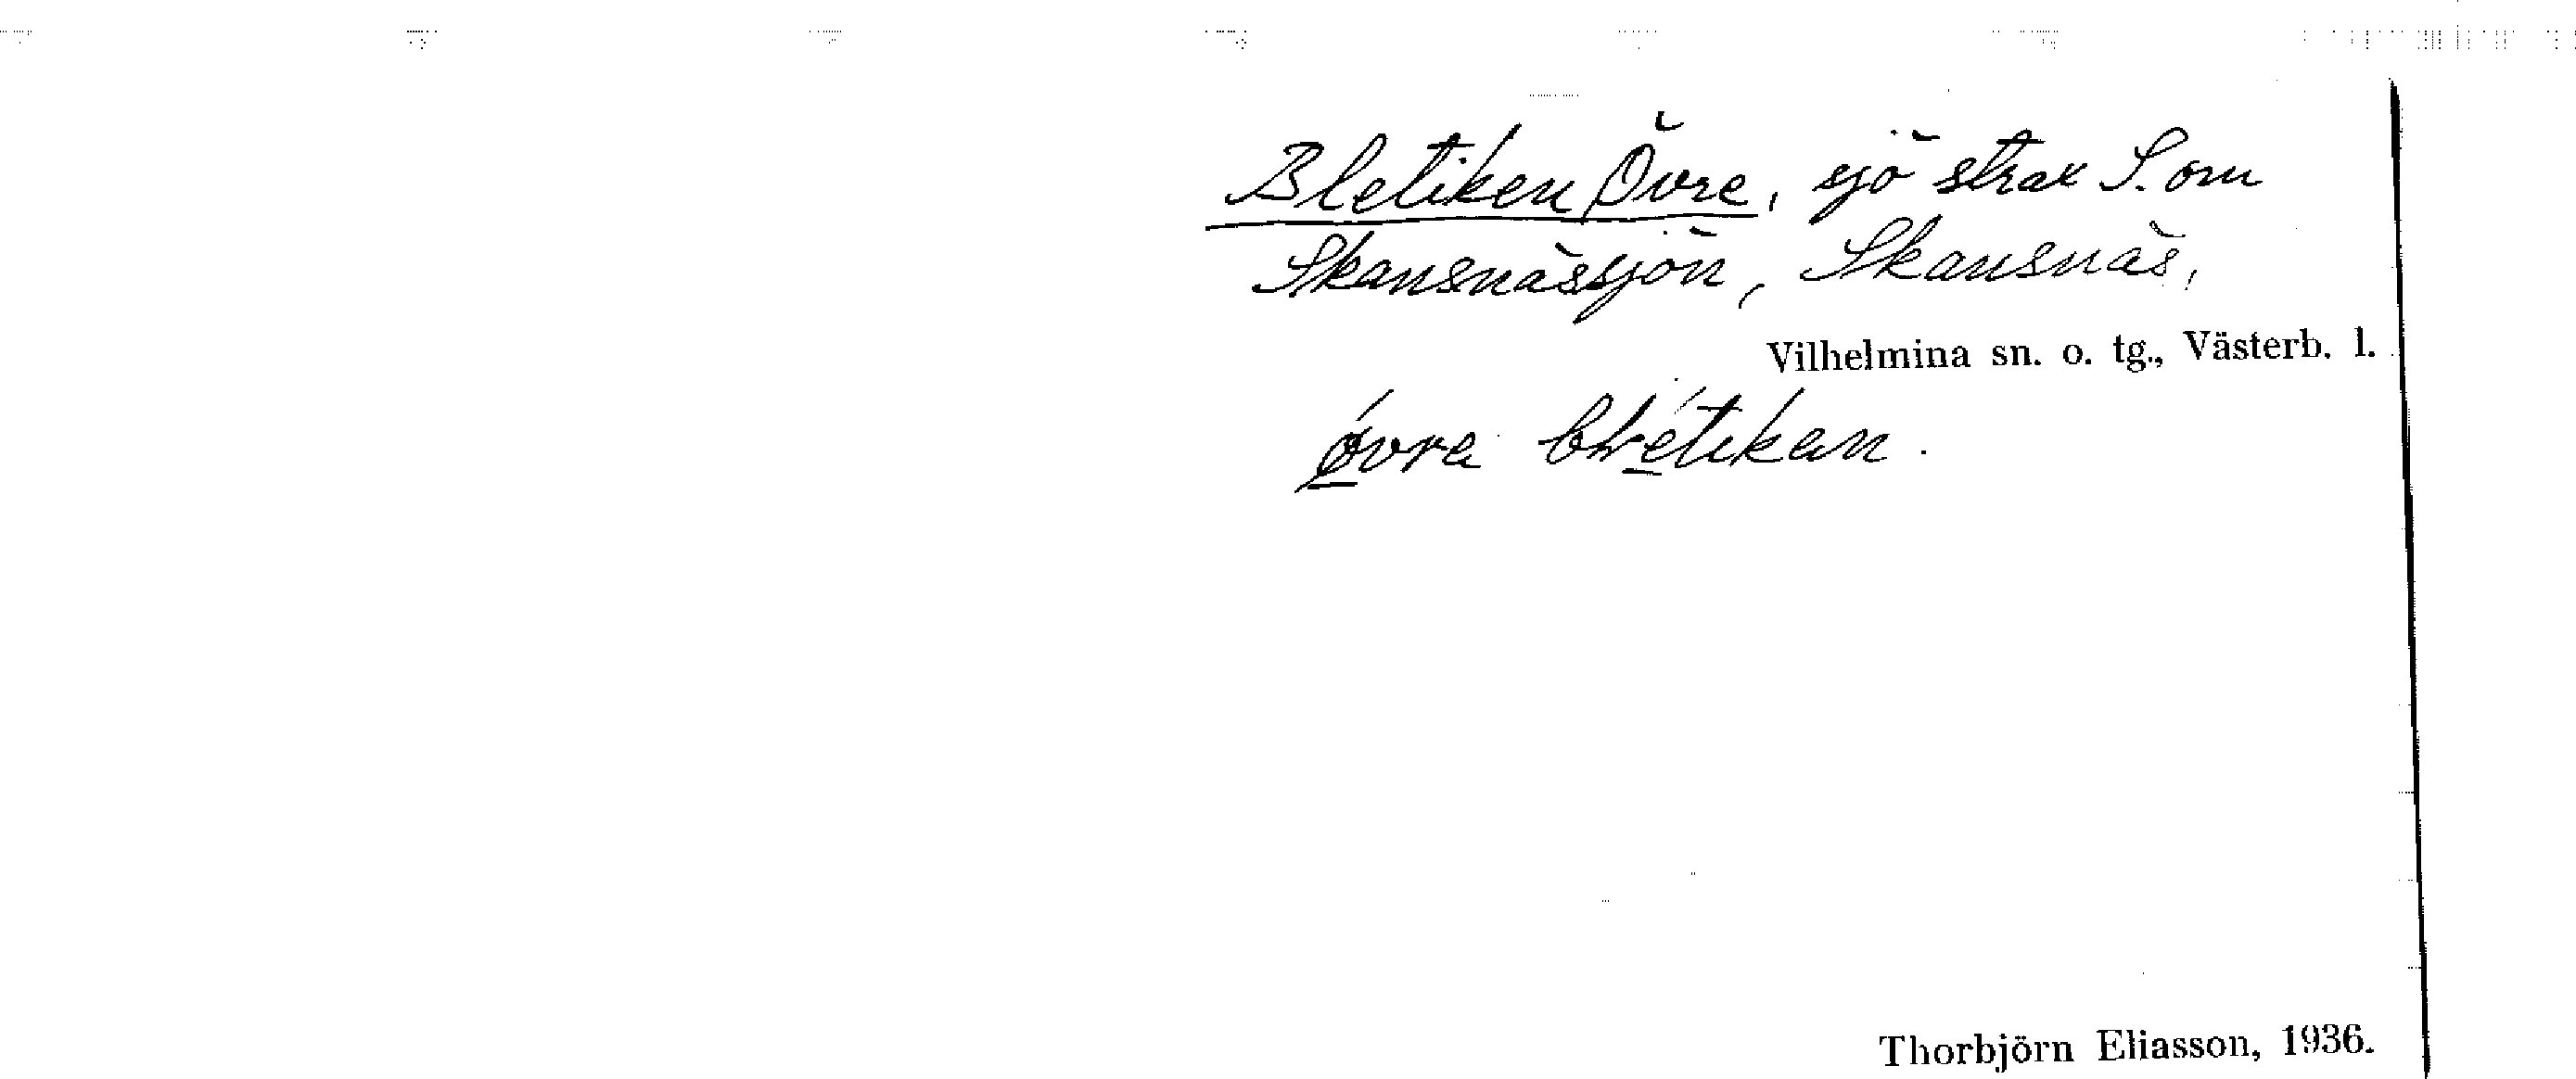 Bletiken Övre, sjö strax S. om
Skansnässjön, Skansnäs,
Vilhelmina sn. o. tg., Västerb. l.
øvra
Thorbjörn Eliasson, 1936.